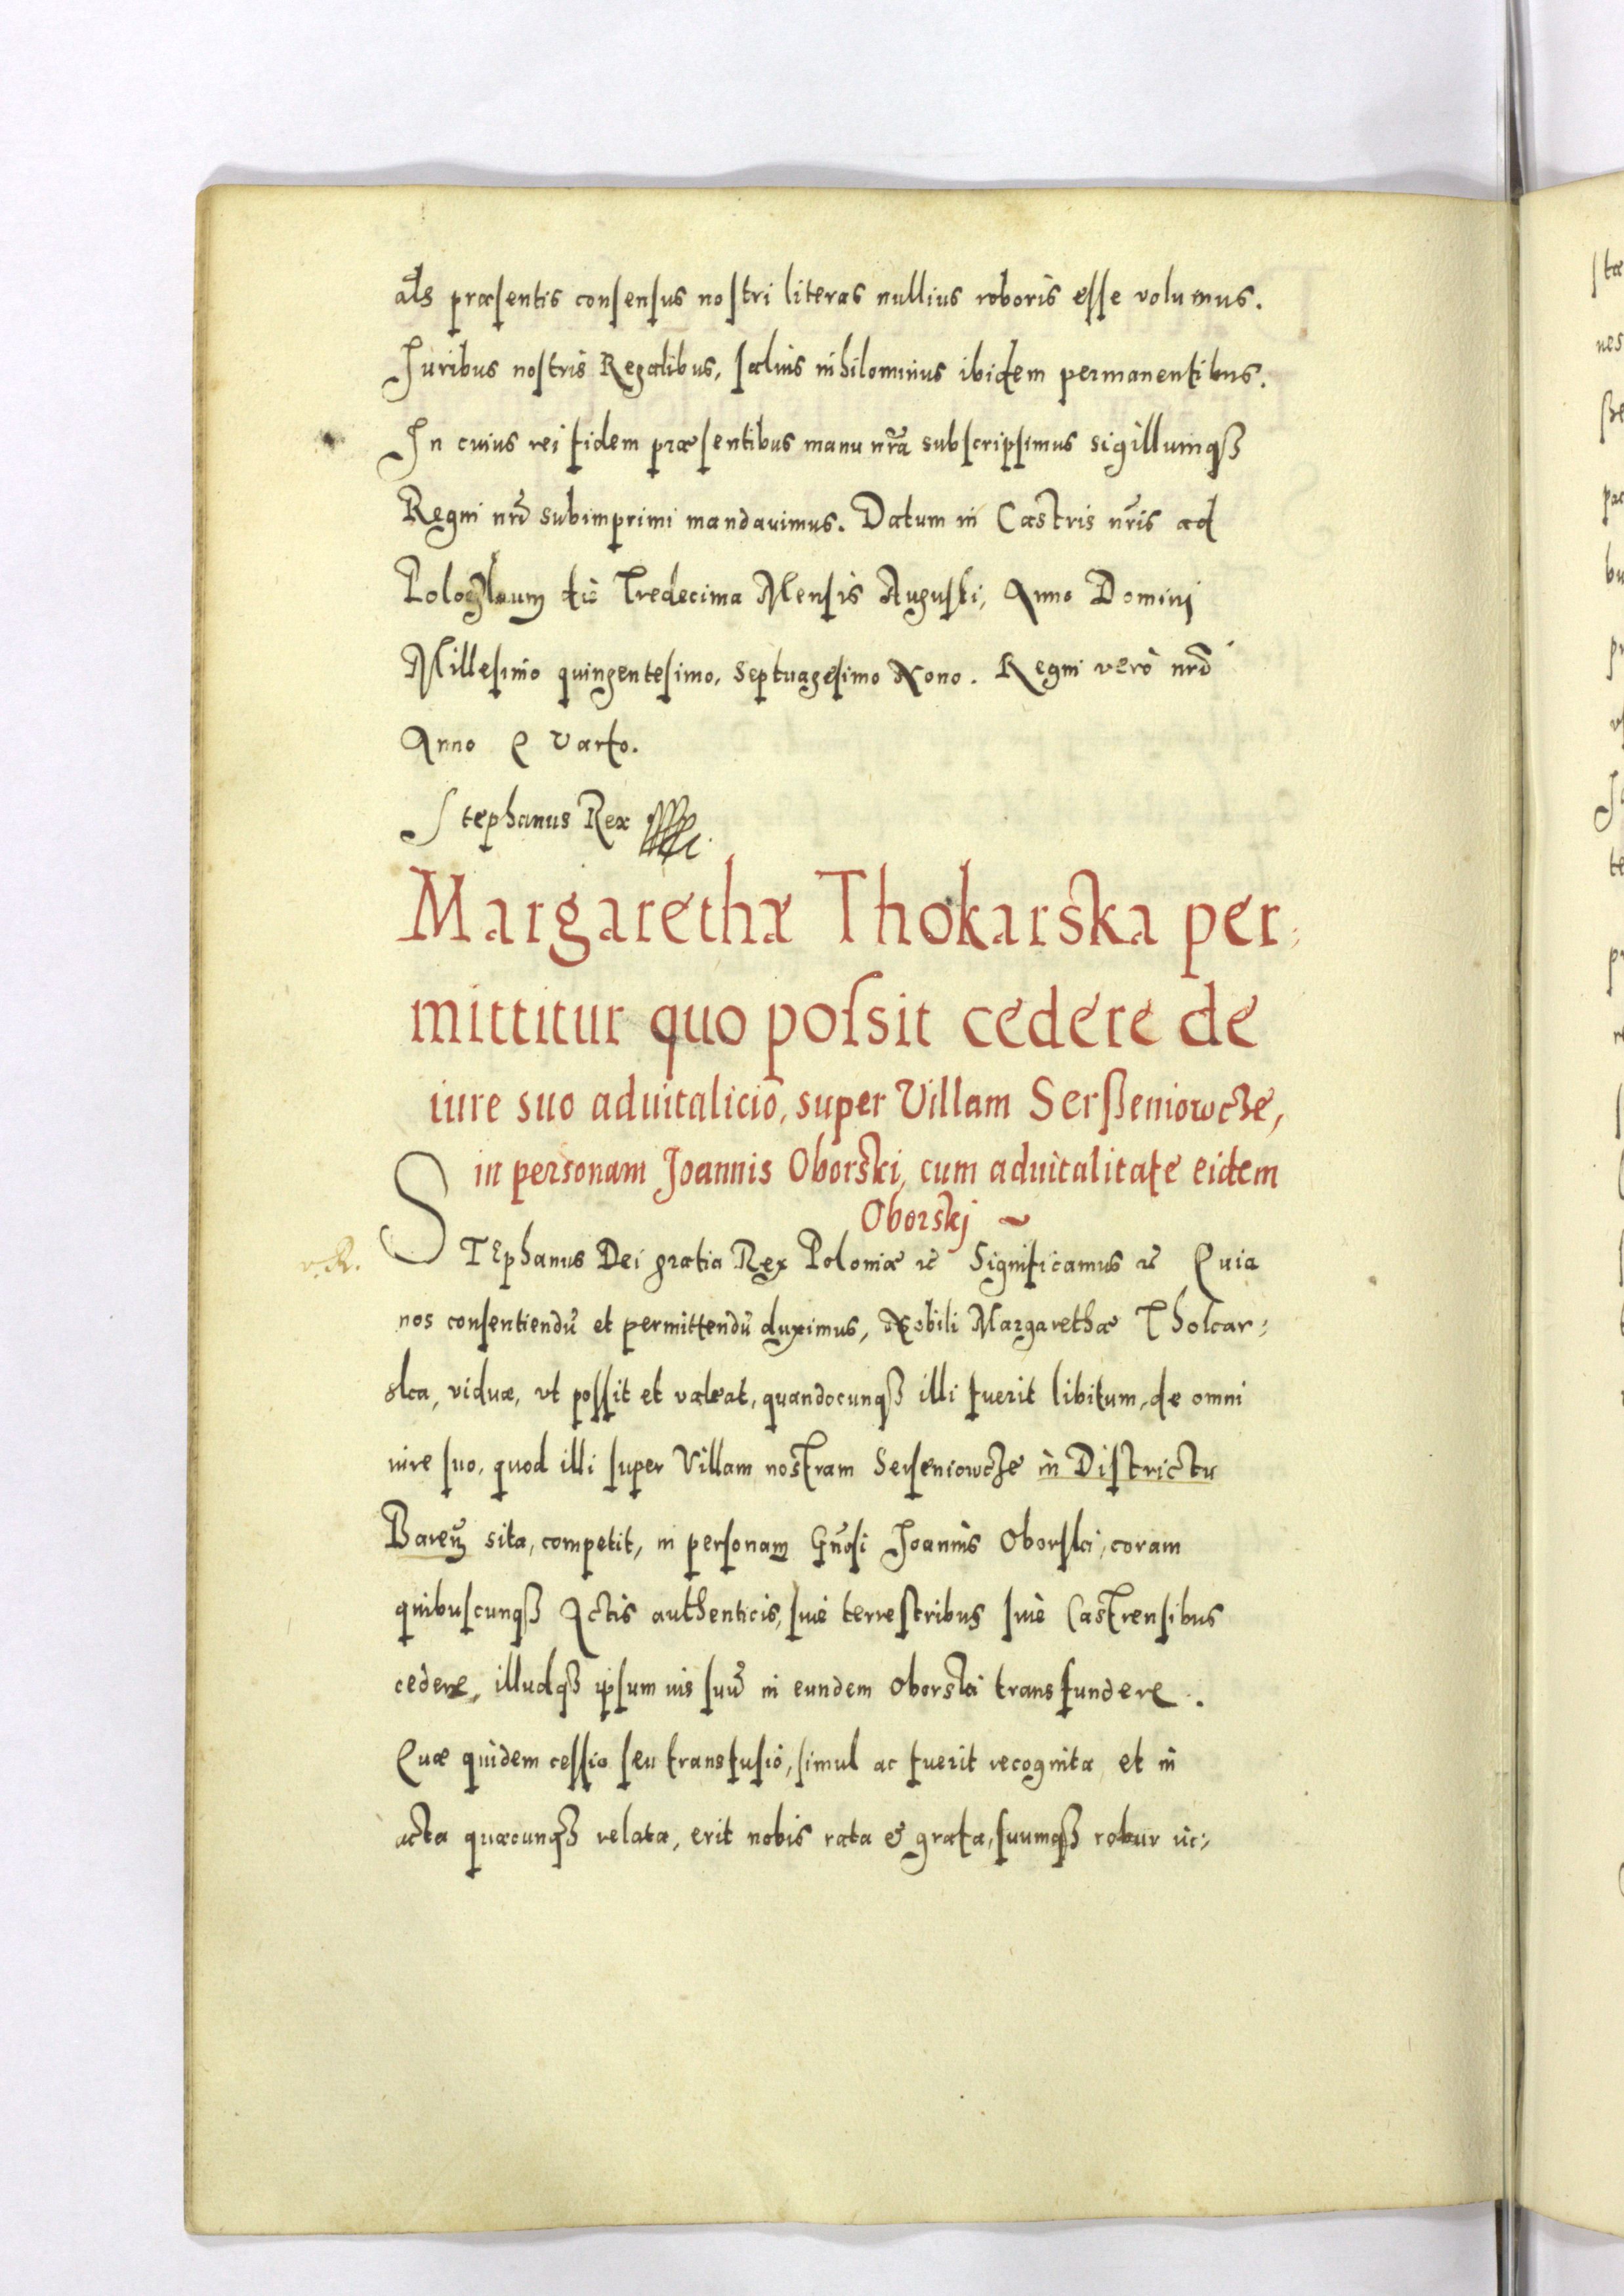 als præsentis consensus nostri literas nullius roboris esse volumus.
Juribus nostris Regalibus, saluis nihilominus ibidem permanentibus.
In cuius rei fidem præsentibus manu nr̃a subscripsimus sigillumqȝ
Regni nrĩ subimprimi mandauimus. Datum in Castris nr̃is ad
die Tredecima Mensis Augusti, Anno Domini
Millesimo quingentesimo, Septuagesimo Nono. Regni verò nrĩ
Anno Quarto.
Stephanus Rex
Margarethæ Thokarska per⸗
mittitur quo poſsit cedere de
iure suo aduitalicio, super Villam Serßeniowcze,
in personam Joannis Oborski, cum aduitalitate eidem
Oborskj ~
v. R.
STEphanus Dei gratia Rex Poloniæ ꝛc Significamus ꝛc Quia
nos consentiendũ et permittendũ duximus, Nobili Margarethæ Thokar⸗
ska, viduæ, vt possit et valeat, quandocunqȝ illi fuerit libitum, de omni
iure suo, quod illi super Villam nostram Serseniowcze in Districtu
Bareñ sita, competit, in personam Gñosi Joannis Oborski, coram
quibuscunqȝ Actis authenticis, siue terrestribus siue Castrensibus
cedere, illudqȝ ipsum ius suũ in eundem Oborski transfundere.
Quæ quidem cessio seu transfusio, simul ac fuerit recognita et in
acta quæcunqȝ relata, erit nobis rata & grata, suumqȝ robur